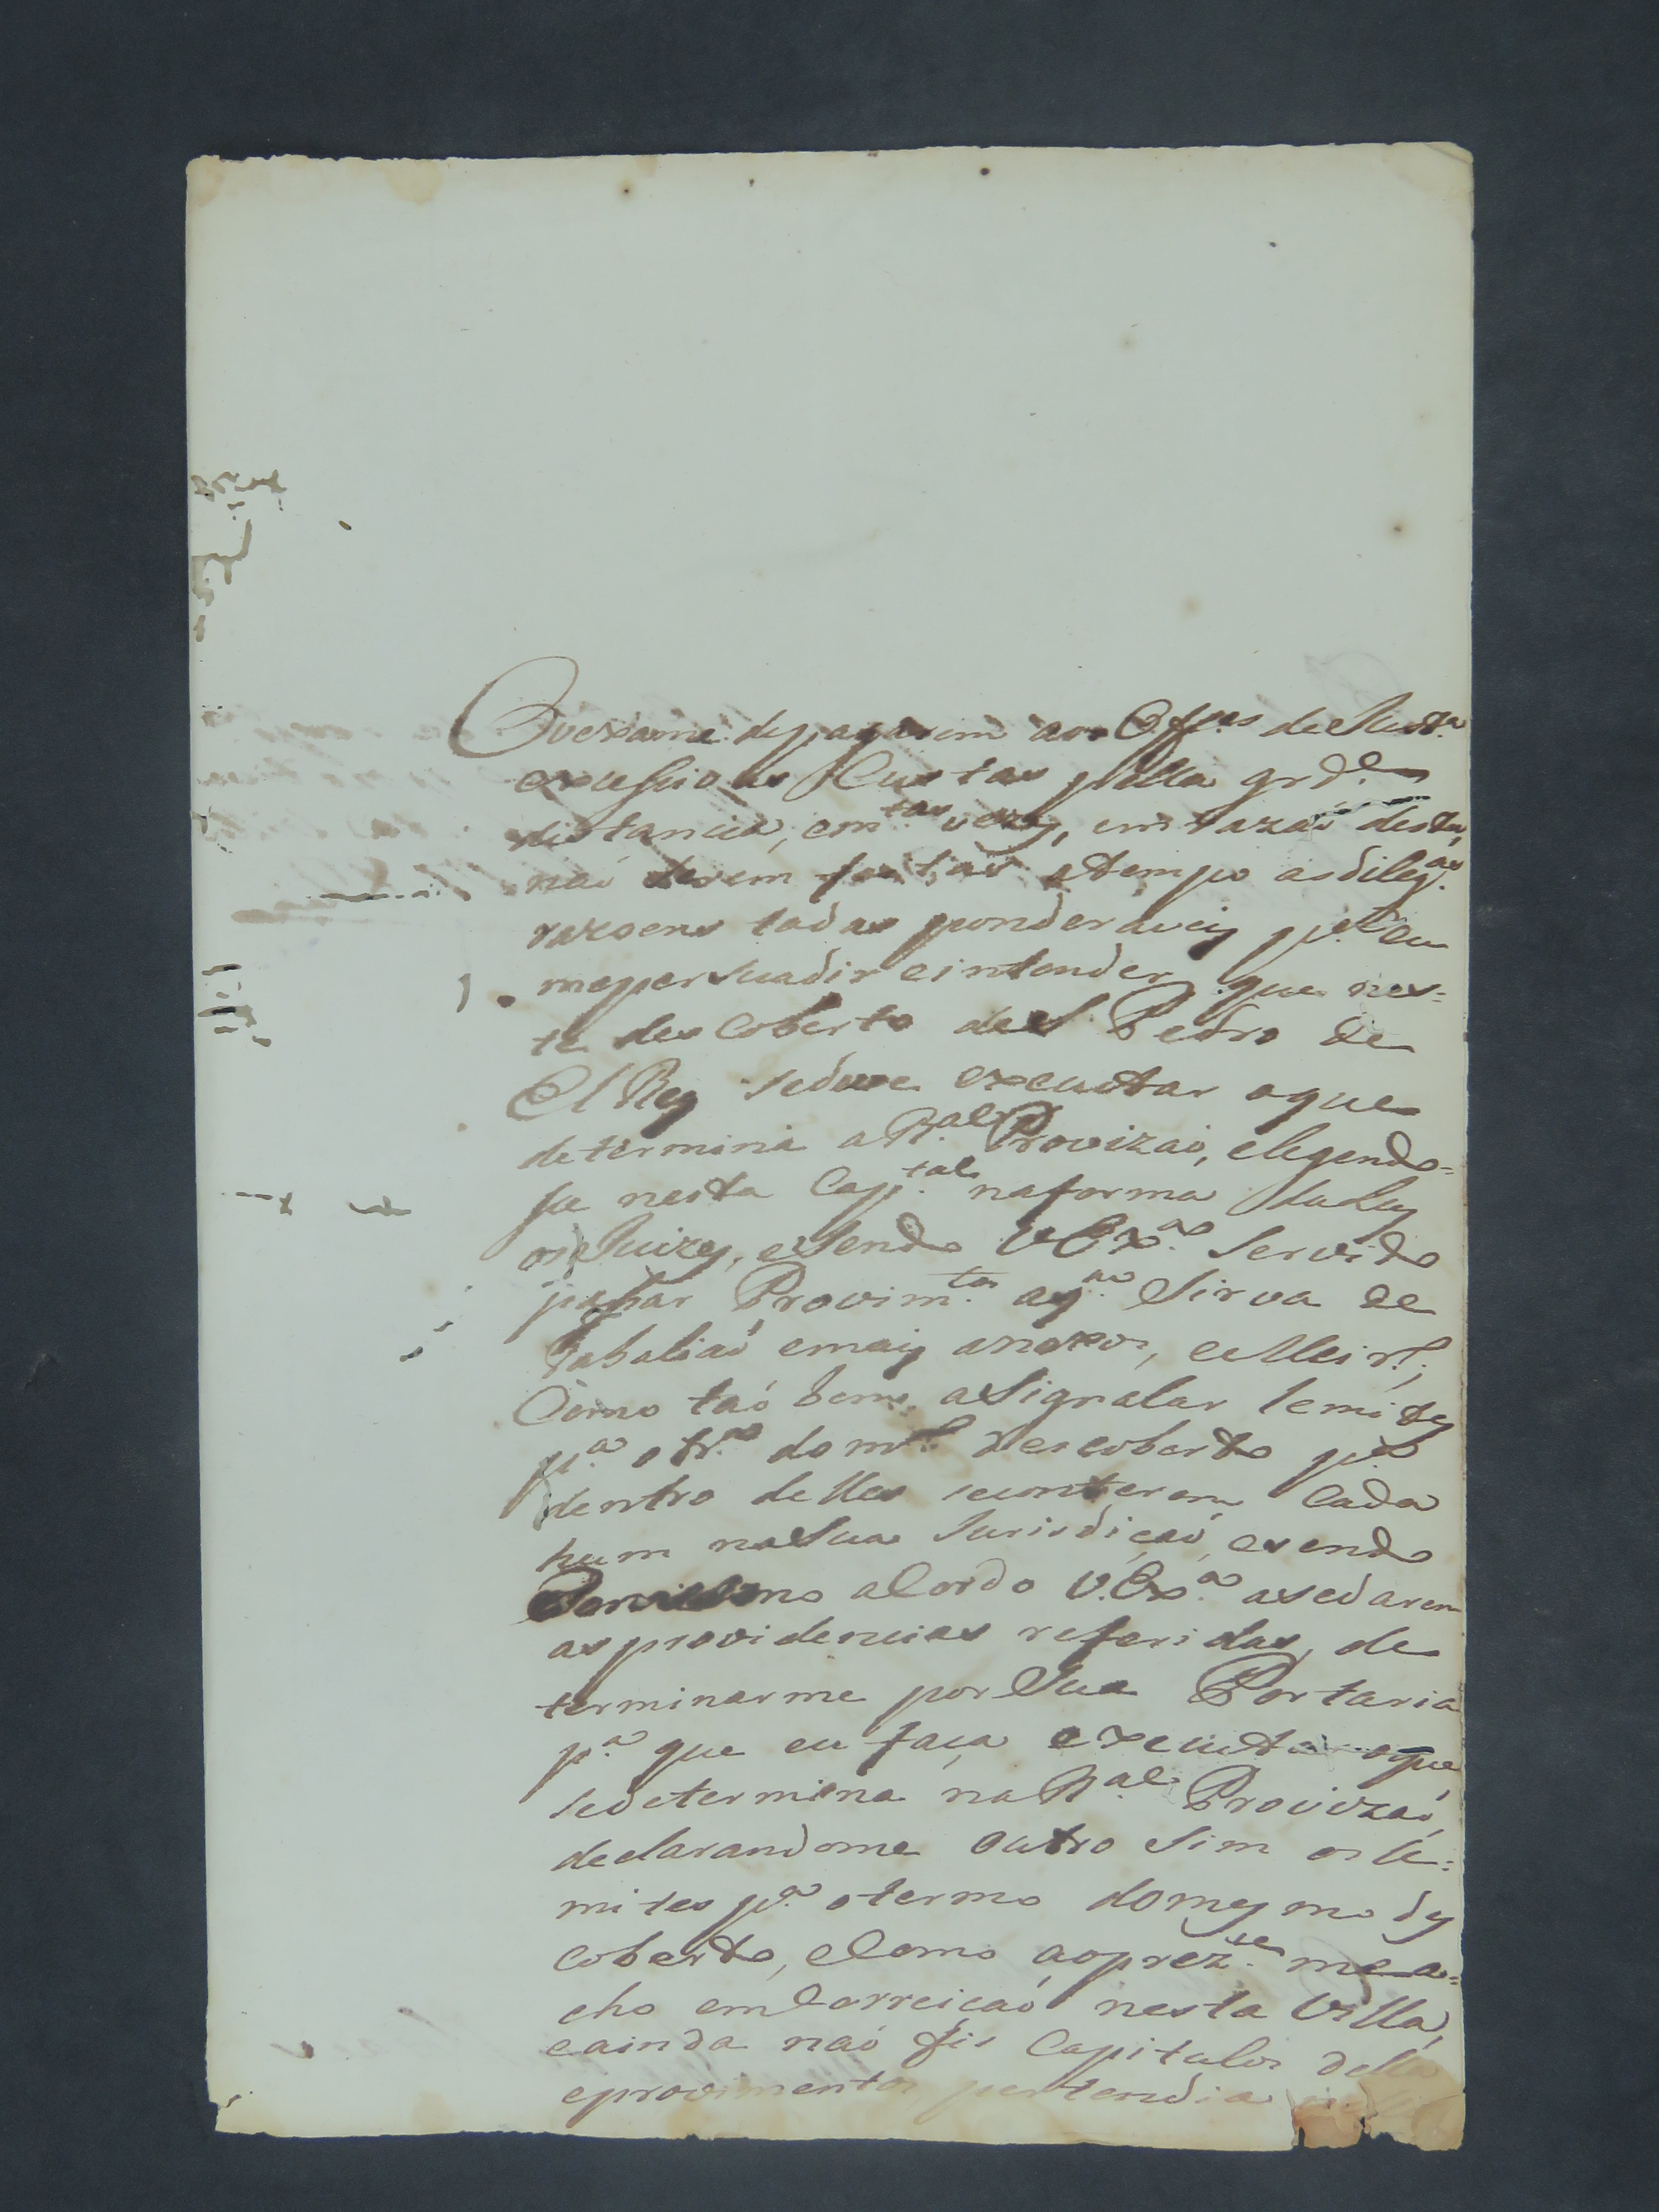 Ovexame de pagarem aos Off.es de Just.a
excessivas Custas pella grd.e
distancia, em.tas vezes, em razaõ desta,
naõ serem feitas atempo as dilig.as
razoens todas ponderaveis p.a eu
mepersuadir eintender que nes=
te desCoberto de S Pedro de
El Rey sedeve executar oque
determina a R.al Provizaõ, elegendo=
se nesta Cap.tal naforma da Ley
os Juizes, esendo V Ex.a Servido
passar Provim.tos aq.m Sirva de
Tabaliaõ emais anexos, e Meir.os
Como taõ bem aSignalar lemites
p.a o tr.o do m.mo descoberto p.a
dentro delles seconterem Cada
hum naSua Jurisdiçaõ, esendo
aCordo V.Ex.a asedarem
asprovidencias referidas, de
terminarme porSua Portaria
p.a que eu faça executar oque
sedetermina na R.al Provizaõ,
declarandome outro Sim os le=
mites p.a otermo domesmo des
coberto, eComo aoprez.te mea=
cho emCorreiçaõ nesta Villa,
eainda naõ fis Capitulos della
eprovimentos pertendia